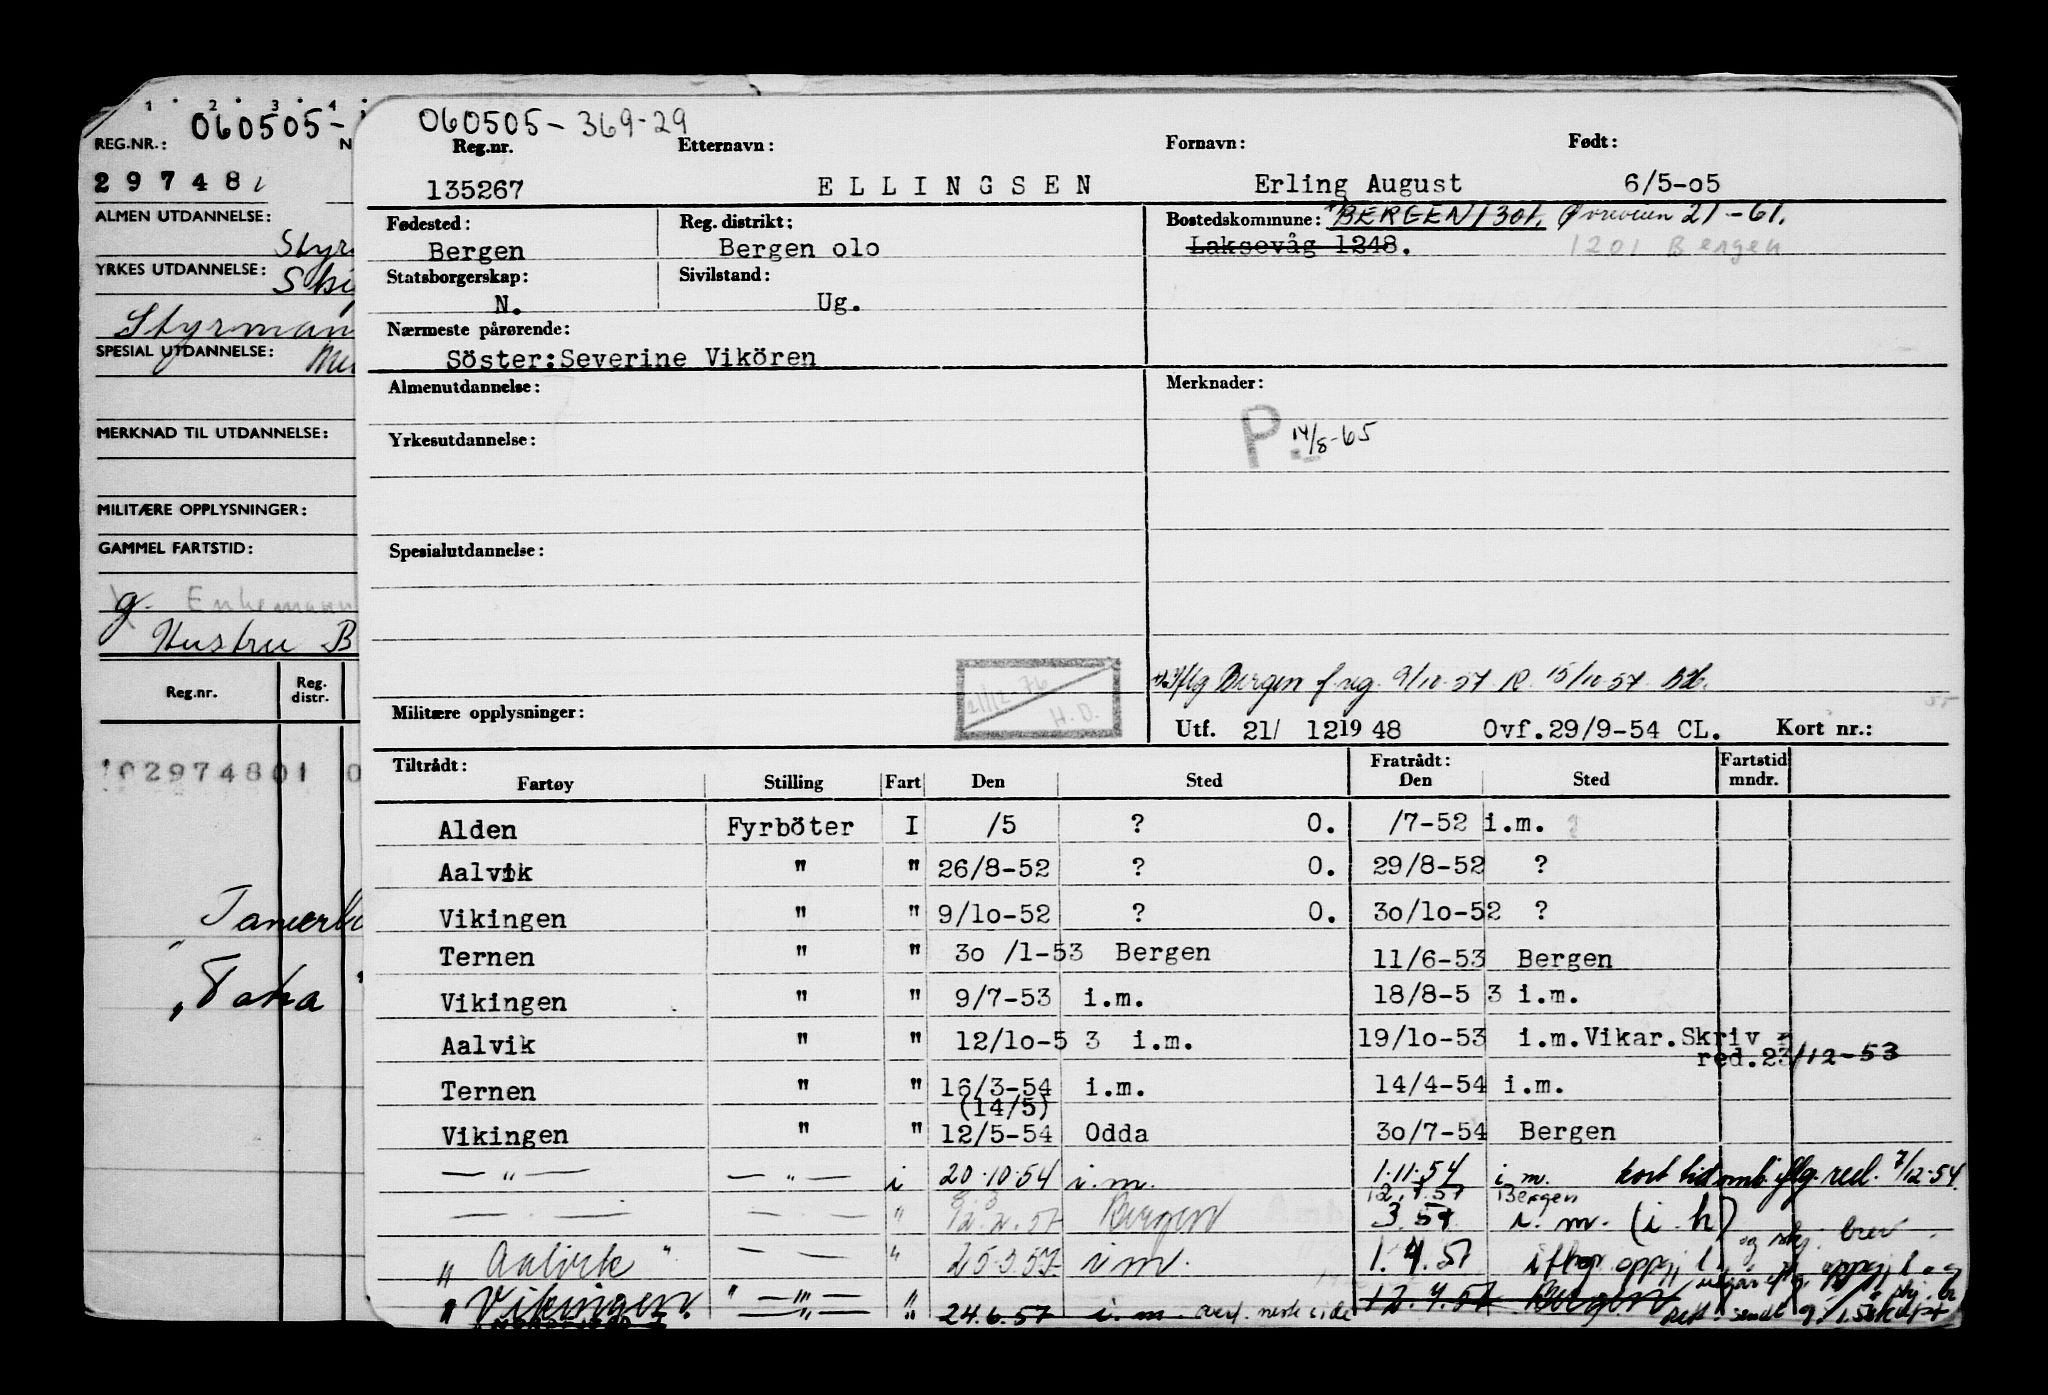 1 2 3 4
060505-
REG.NR.: N
29748
ALMEN UTDANNELSE:
Styr
YRKES UTDANNELSE: Ski
Styrman
SPESIAL UTDANNELSE:
MERKNAD TIL UTDANNELSE:
MILITÆRE OPPLYSNINGER:
GAMMEL FARTSTID:
g. Enkemann
Hustru B
Reg.nr. Reg. distr.
102974801 0
„Tama
060505-369-29
Reg.nr. Etternavn: Fornavn: Født:
135267 ELLINGSEN Erling August 6/5-05
Fødested: Reg. distrikt: Bostedskommune: BERGEN 1301. 21-61.
Bergen Bergen olo Laksevåg 1248. 1201 Bergen
Statsborgerskap: Sivilstand:
N. Ug.
Nærmeste pårørende:
Söster:Severine Vikören
Almenutdannelse: Merknader:
P. 14/8-65
Yrkesutdannelse:
Spesialutdannelse:
21/12-76
H.D.
Bergen f. reg. 9/10-57. R. 15/10-57
Militære opplysninger: Utf. 21/ 12 19 48 Ovf.29/9-54 CL. Kort nr.:
Tiltrådt: Fratrådt: Fartstid
Fartøy Stilling Fart Den Sted Den Sted mndr.
Alden Fyrböter I /5 ? O. /7-52 i.m.
Aalvik " " 26/8-52 ? O. 29/8-52 ?
Vikingen " " 9/lo-52 ? O. 3o/lo-52 ?
Ternen " " 3o /1-53 Bergen 11/6-53 Bergen
Vikingen " " 9/7-53 i.m. 18/8-5 3 i.m.
Aalvik " " 12/lo-5 3 i.m. 19/lo-53 i.m.Vikar.Skriv
red.23/12-53
Ternen " " 16/3-54 i.m. 14/4-54 i.m.
(14/5)
Vikingen " " 12/5-54 Odda 3o/7-54 Bergen
— " — — " — i 20.10.54 i.m. 1.11.54 i.m. kort tid omb. iflg. red. 7/12-54.
12.2.57 Bergen Bergen
i.m. (i.h)
" Aalvik " — — " 25.3.57. i m. 1.4.57 iflg oppgj
og skj. brev
" Vikingen " — " — " 12.4.57 Bergen
24.6.57 i.m. neste side